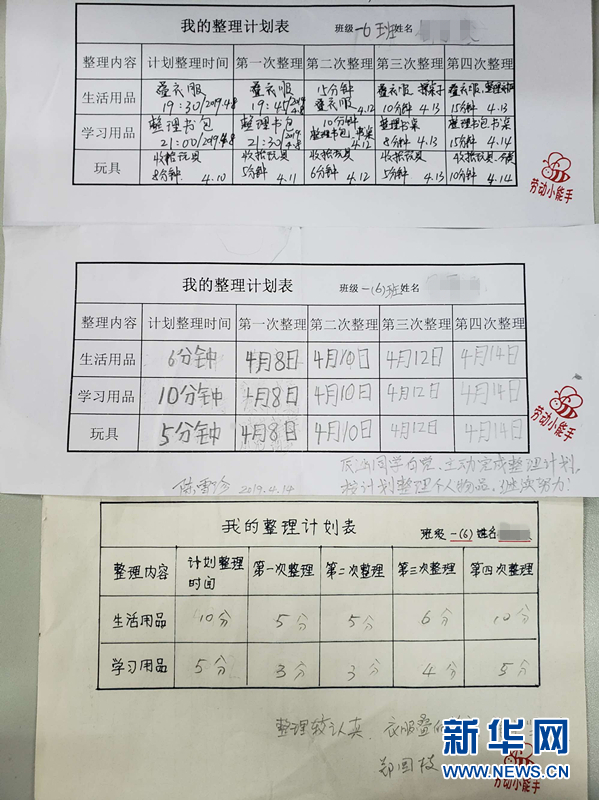 我的整理计划表 班级一6班姓名
整理内容 计划整理时间 第一次整理 第二次整理 第三次整理 第四次整理
生活用品 叠衣服 19:30/2019.4.8 叠衣服 19:45/2019.4.8 15分钟 叠衣服 4.12 叠衣服 10分钟 4.13 叠衣服 15分钟 4.13
学习用品 整理书包 21:00/2019.4.8 整理书包 21:30/2019.4.8 10分钟 整理书包 书桌 4.12 整理书桌 8分钟 4.13 整理书包书桌 15分钟 4.14
玩具 收拾玩具 8分钟 4.10 收拾玩具 5分钟 4.11 收拾玩具 6分钟 4.12 收拾玩具 5分钟 4.13 收拾玩具 10分钟 4.14
劳动小能手
我的整理计划表 班级一(6)班姓名
整理内容 计划整理时间 第一次整理 第二次整理 第三次整理 第四次整理
生活用品 6分钟 4月8日 4月10日 4月12日 4月14日
学习用品 10分钟 4月8日 4月10日 4月12日 4月14日
玩具 5分钟 4月8日 4月10日 4月12日 4月14日
劳动小能手
同学自觉、主动完成整理计划,
按计划整理个人物品。继续努力!
2019.4.14
我的整理计划表 班级一(6)姓名
整理内容 计划整理时间 第一次整理 第二次整理 第三次整理 第四次整理
生活用品 10分 5分 5分 6分 10分
学习用品 5分 3分 3分 4分 5分
整理较认真、衣服叠的
郑国枝
劳动小能手
新华网
WWW.NEWS.CN